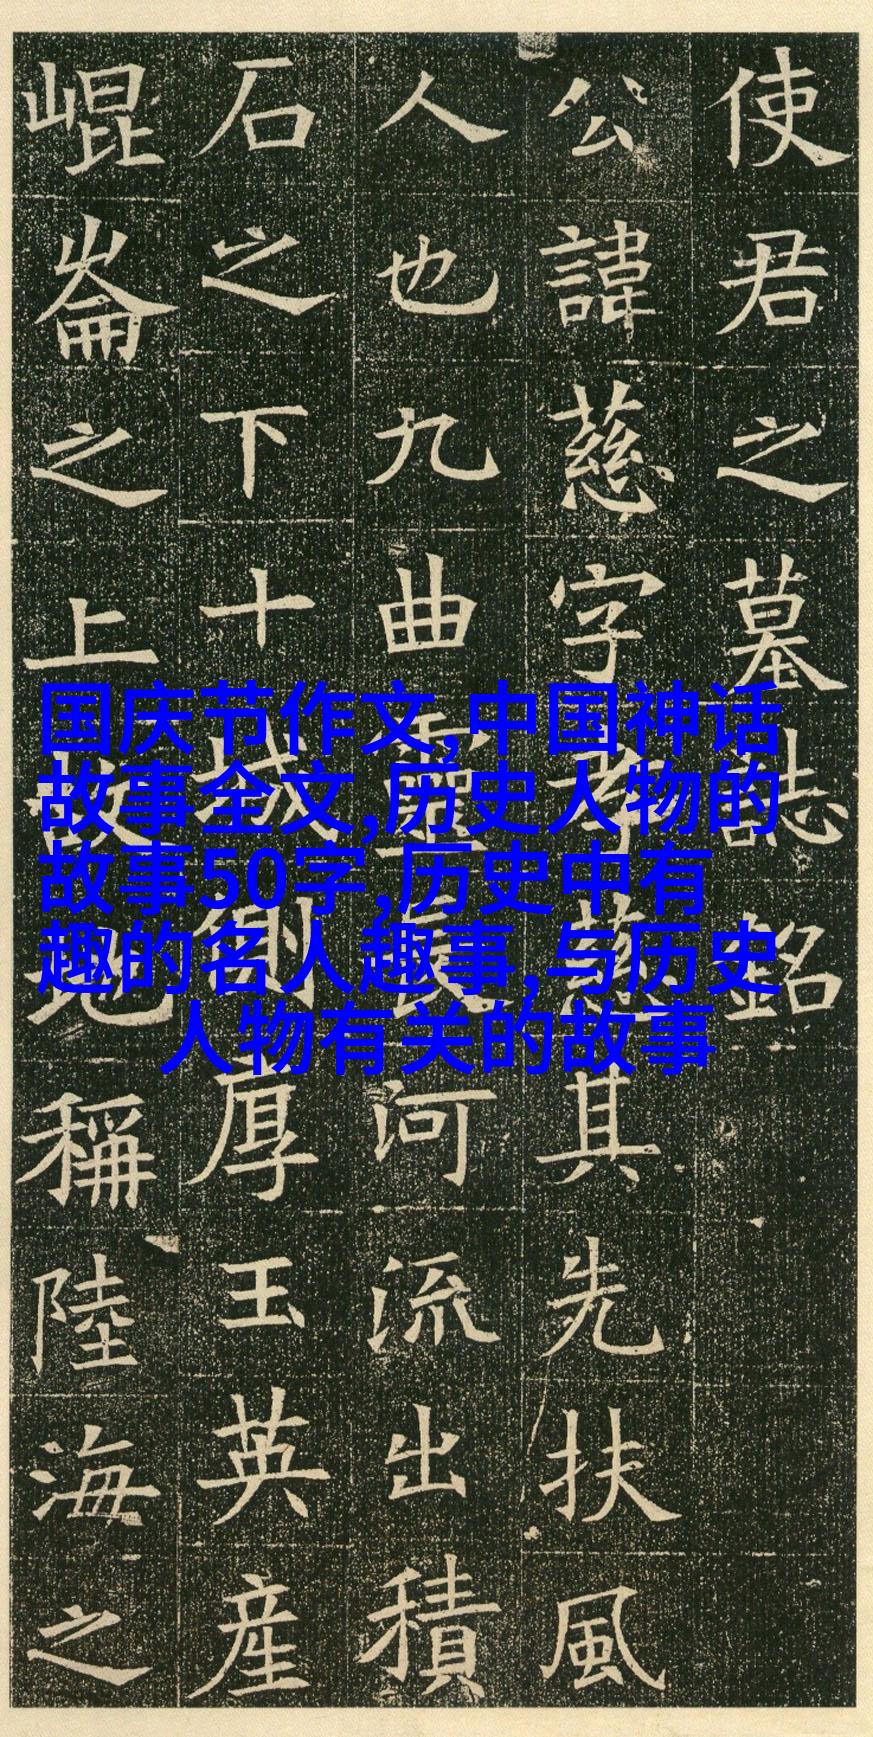 使君之墓誌銘
公諱慈字孝慈其先扶風
人也九曲靈長河流出積
石之下十城側厚玉英産
崐崙之上故地稱陸海之
国庆节作文,中国神话
故事全文,历史人物的
故事50字,历史中有
趣的名人趣事,与历史
人物有关的故事